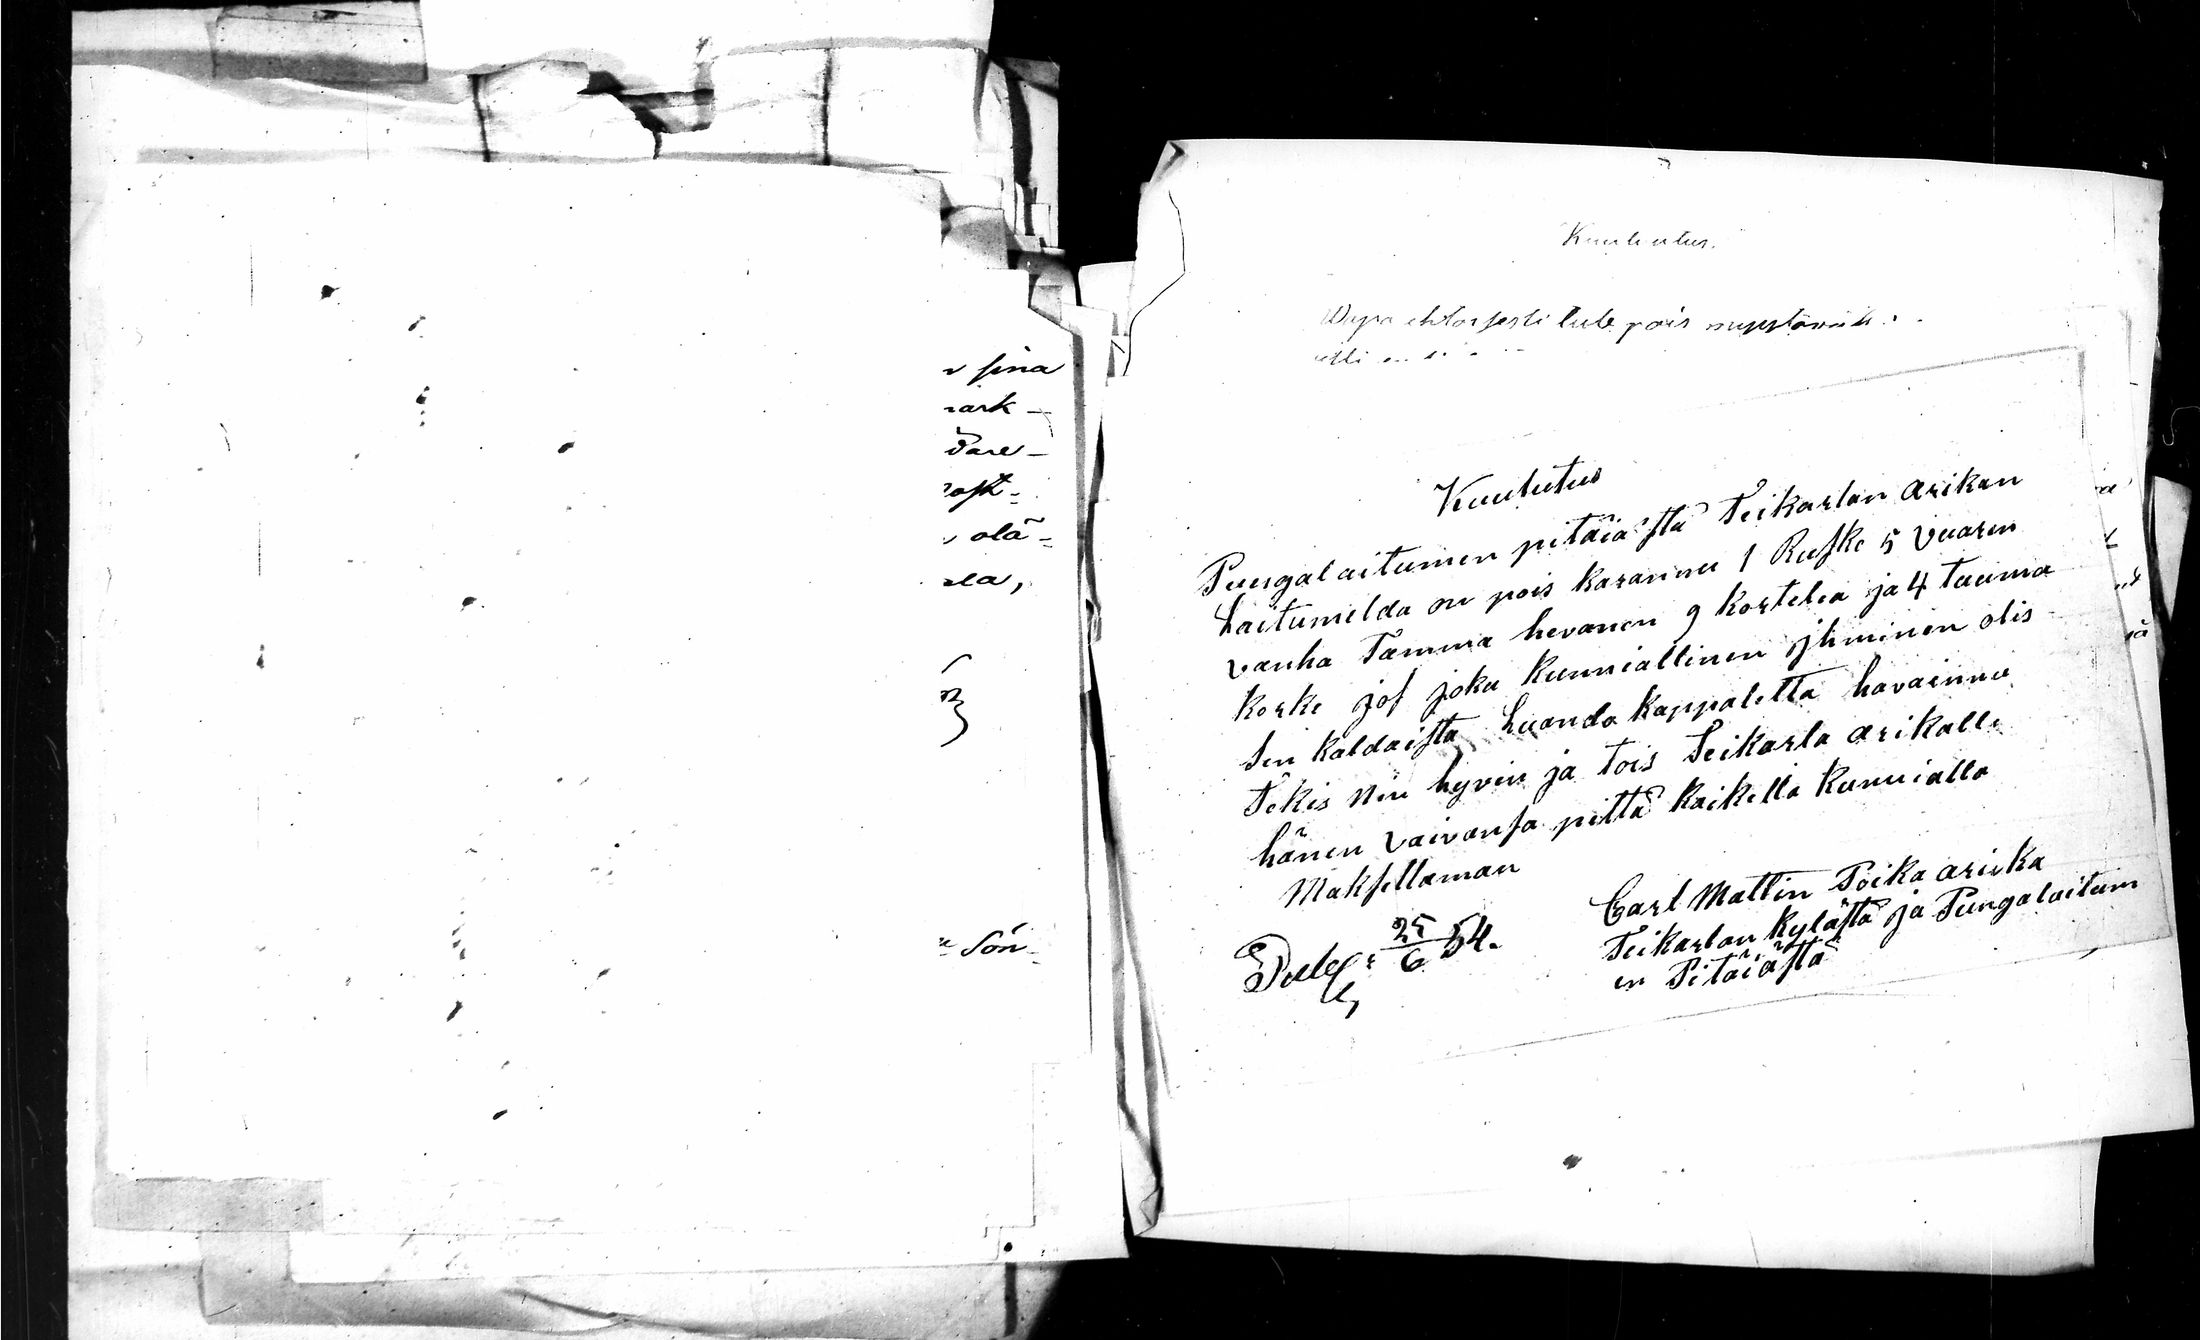 sina
ark-
dare-
olä=
ela,
Sön=
Kuulutus.
Wapa ehtoisesti tule pois myytäväxi
Kuulutus
Pungalaitumen pitäiästä Teikarlan arikan
Laitumelda on pois karannu 1 Ruske 5 vuaren
vanha Tamma hevonen 9 kortelia ja 4 tuuma
korke jos joku kunniallinen ihminen olis
sen kaldaista Luanda kappaletta havainnu
Tekis niin hyvin ja tois Teikarla arikalle
hänen vaivansa pittä kaikella kunnialla
Maksettaman
25/6 54.
Carl Mattin Poika arikka
Teikarlan kylästä ja Pungalaitum
en Pitäiästä